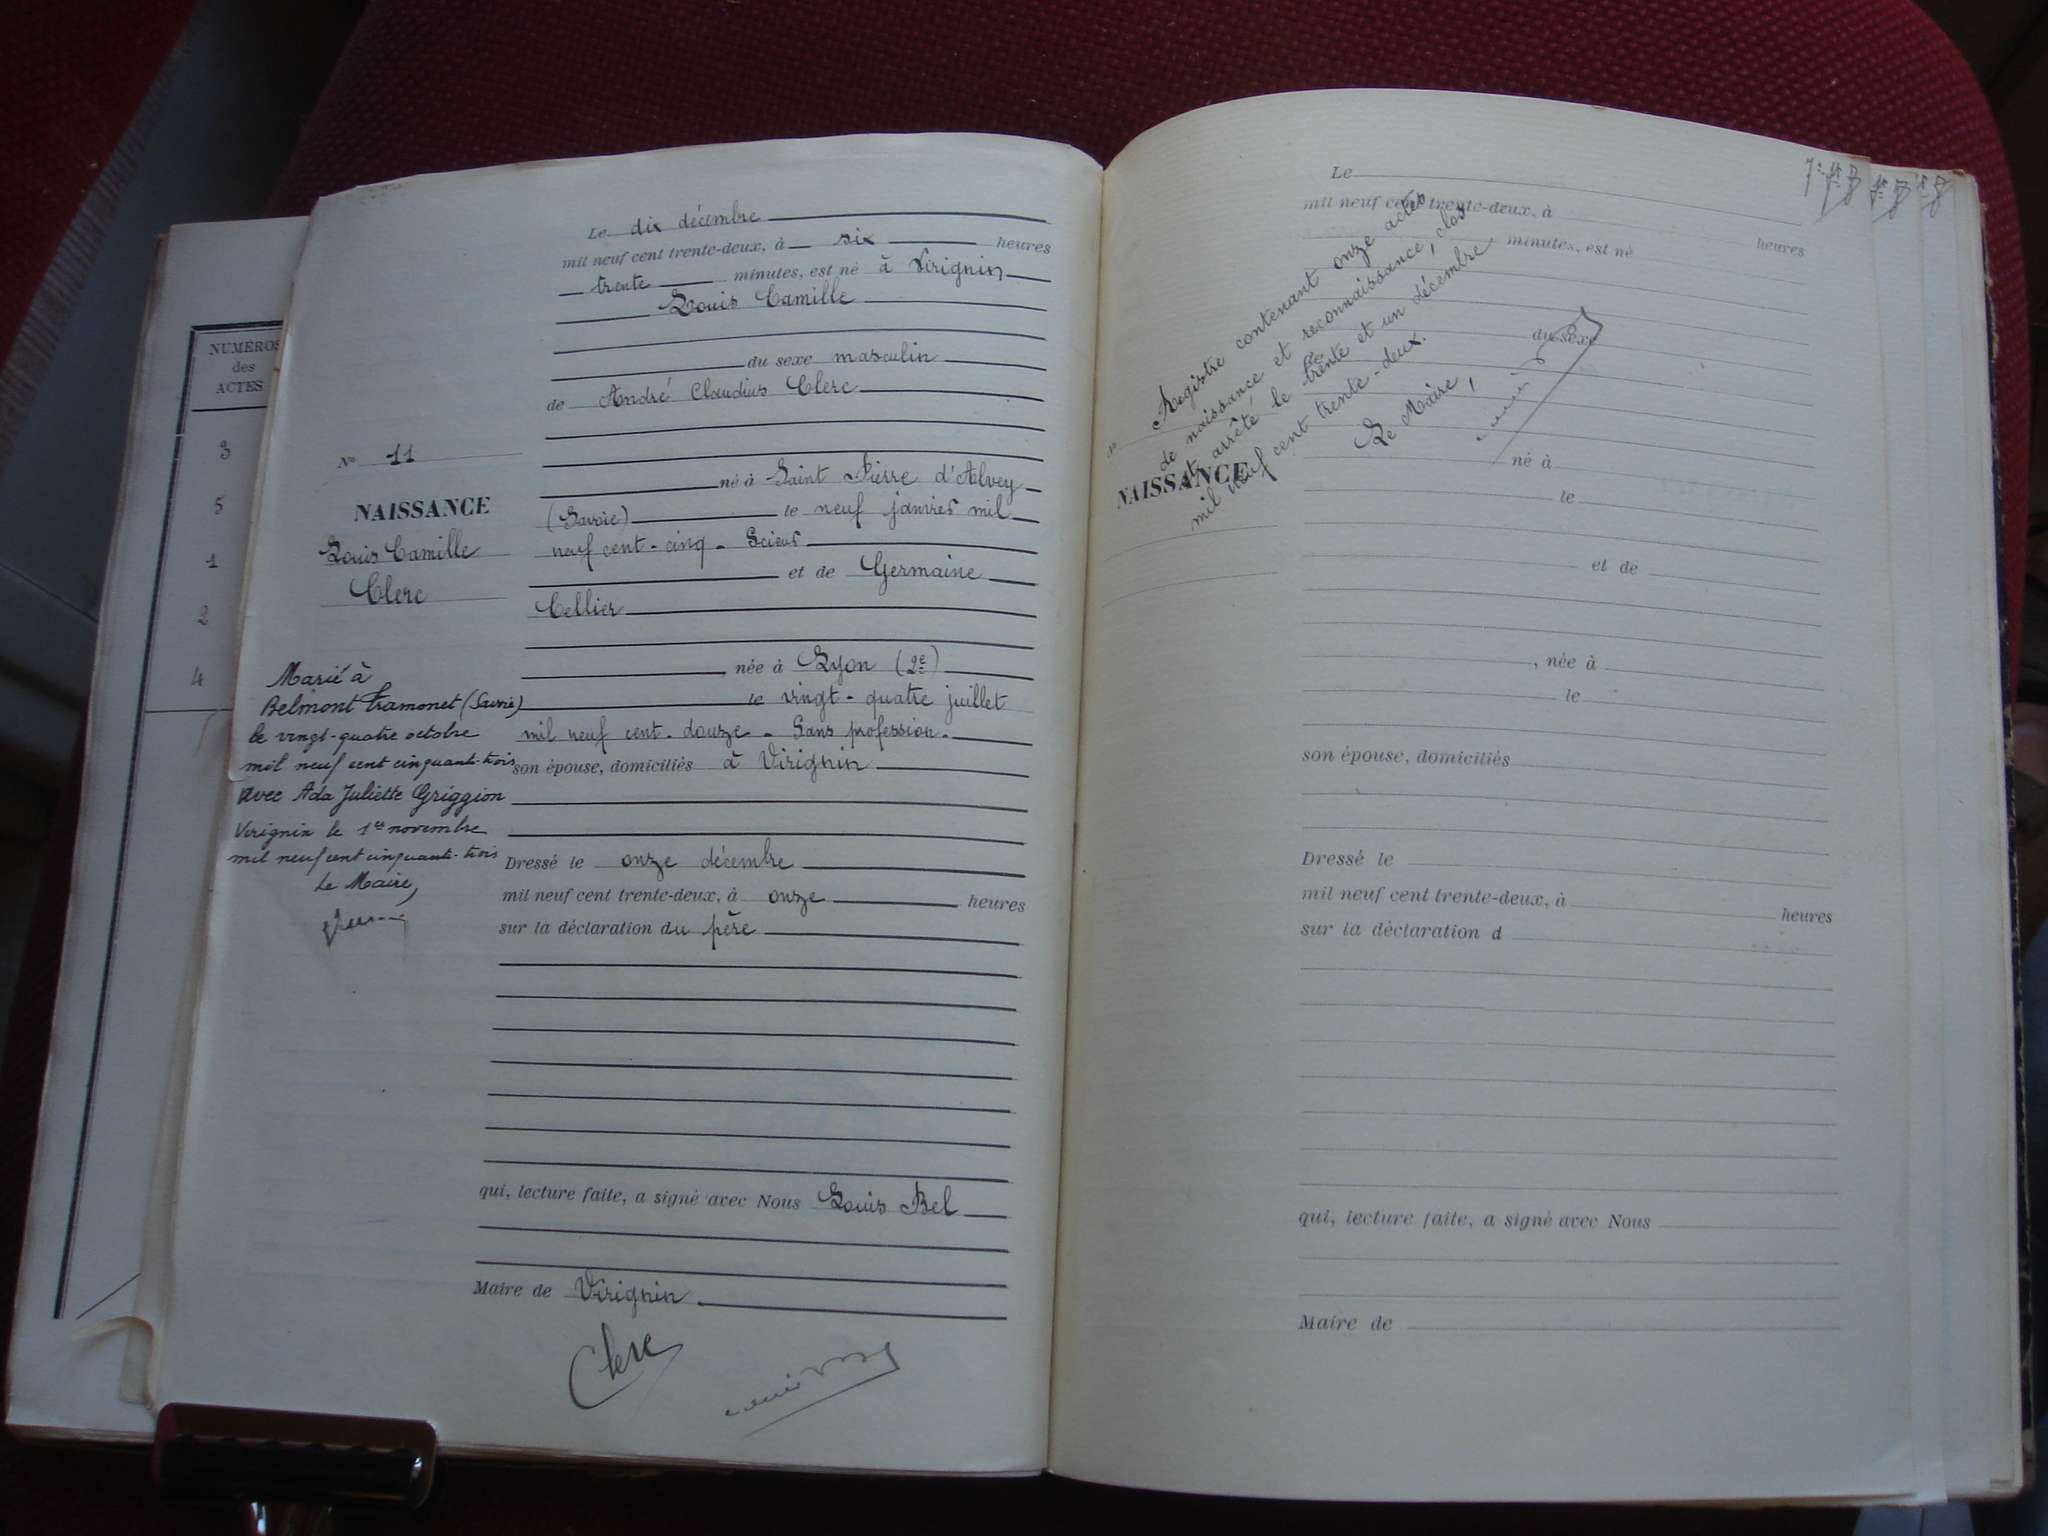 NUMÉROS
des
ACTES
3
5
1
2
4
Le dix décembre
mil neuf cent trente-deux, à six heures
trente minutes, est né à Virignin
Louis Camille
du sexe masculin
de André Claudius Clerc
né à Saint Pierre d'Alvey
(Savoie) le neuf janvier mil
neuf cent-cinq - Scieur
et de Germaine
Cellier
née à Lyon (2e)
le vingt-quatre juillet
mil neuf cent-douze - Sans profession-
son épouse, domiciliés à Virignin
Dressé le onze décembre
mil neuf cent trente-deux, à onze heures
sur la déclaration du père
qui, lecture faite, a signé avec Nous Louis Bel
Maire de Virignin
Clerc
N° 11
NAISSANCE
Louis Camille
Clerc
Marié à
Belmont Tramonet (Savoie)
le vingt-quatre octobre
mil neuf cent cinquante-trois
avec Ada Juliette Griggion
Virignin le 1er novembre
mil neuf cent cinquante-trois
Le Maire,
Le
mil neuf cent trente-deux, à
heures
minutes, est né
du sexe
N°
NAISSANCE
Registre contenant onze actes
de naissance et reconnaissance, clos
et arrêté le trente et un décembre
mil neuf cent trente-deux.
Le Maire,
né à
le
et de
, née à
le
son épouse, domiciliés
Dressé le
mil neuf cent trente-deux, à heures
sur la déclaration d
qui, lecture faite, a signé avec Nous
Maire de